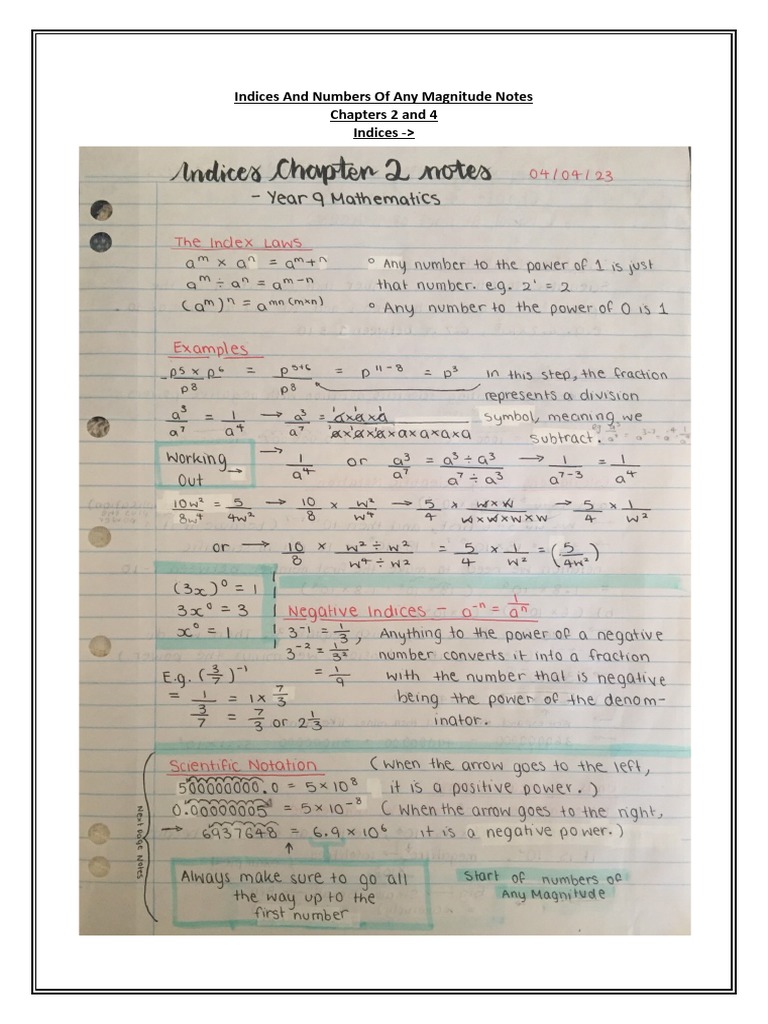 Indices And Numbers Of Any Magnitude Notes
Chapters 2 and 4
Indices ->
Indices Chapter 2 notes 04/04/23
- Year 9 Mathematics
The Index Laws
aᵐ × aⁿ = aᵐ⁺ⁿ ° Any number to the power of 1 is just
aᵐ ÷ aⁿ = aᵐ⁻ⁿ that number. e.g. 2¹ = 2
(aᵐ)ⁿ = aᵐⁿ ⁽ᵐˣⁿ⁾ ° Any number to the power of 0 is 1
Examples
p⁵ × p⁶ / p⁸ = p⁵⁺⁶ / p⁸ = p¹¹⁻⁸ = p³ In this step, the fraction
represents a division
a³/a⁷ = 1/a⁴ → a³/a⁷ = a×a×a / a×a×a×a×a×a×a symbol, meaning we
subtract.
Working Out → → 1/a⁴ or a³/a⁷ = a³ ÷ a³ / a⁷ ÷ a³ → 1/a⁷⁻³ = 1/a⁴
10w²/8w⁴ = 5/4w² → 10/8 × w²/w⁴ → 5/4 × w×w / w×w×w×w → 5/4 × 1/w²
or → 10/8 × w² ÷ w² / w⁴ ÷ w² = 5/4 × 1/w² = (5/4w²)
(3x)⁰ = 1
3x⁰ = 3
x⁰ = 1
Negative Indices - a⁻ⁿ = 1/aⁿ
3⁻¹ = 1/3, Anything to the power of a negative
3⁻² = 1/3² number converts it into a fraction
= 1/9 with the number that is negative
being the power of the denom-
inator.
E.g. (3/7)⁻¹
= 1 / 3/7 = 1 × 7/3
= 7/3 or 2 1/3
Scientific Notation (When the arrow goes to the left,
500000000.0 = 5 × 10⁸ it is a positive power.)
0.00000005 = 5 × 10⁻⁸ (When the arrow goes to the right,
→ 6937648 = 6.9 × 10⁶ it is a negative power.)
Next page notes
↑
Always make sure to go all
the way up to the
first number
Start of numbers of
Any Magnitude